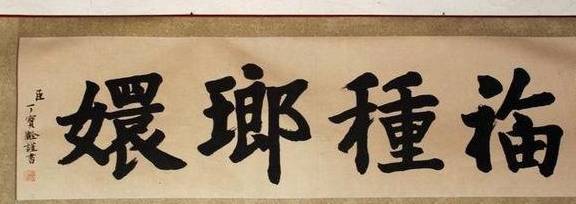 福種瑯嬛
臣丁寶謹書